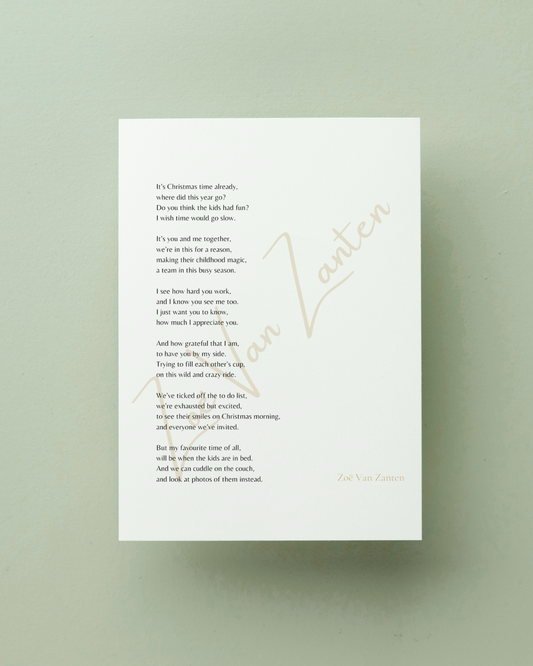 It's Christmas time already,
where did this year go?
Do you think the kids had fun?
I wish time would go slow.

It's you and me together,
we're in this for a reason,
making their childhood magic,
a team in this busy season.

I see how hard you work,
and I know you see me too.
I just want you to know,
how much I appreciate you.

And how grateful that I am,
to have you by my side.
Trying to fill each other's cup,
on this wild and crazy ride.

We've ticked off the to do list,
we're exhausted but excited,
to see their smiles on Christmas morning,
and everyone we've invited.

But my favourite time of all,
will be when the kids are in bed.
And we can cuddle on the couch,
and look at photos of them instead.

Zoë Van Zanten
Zoë Van Zanten